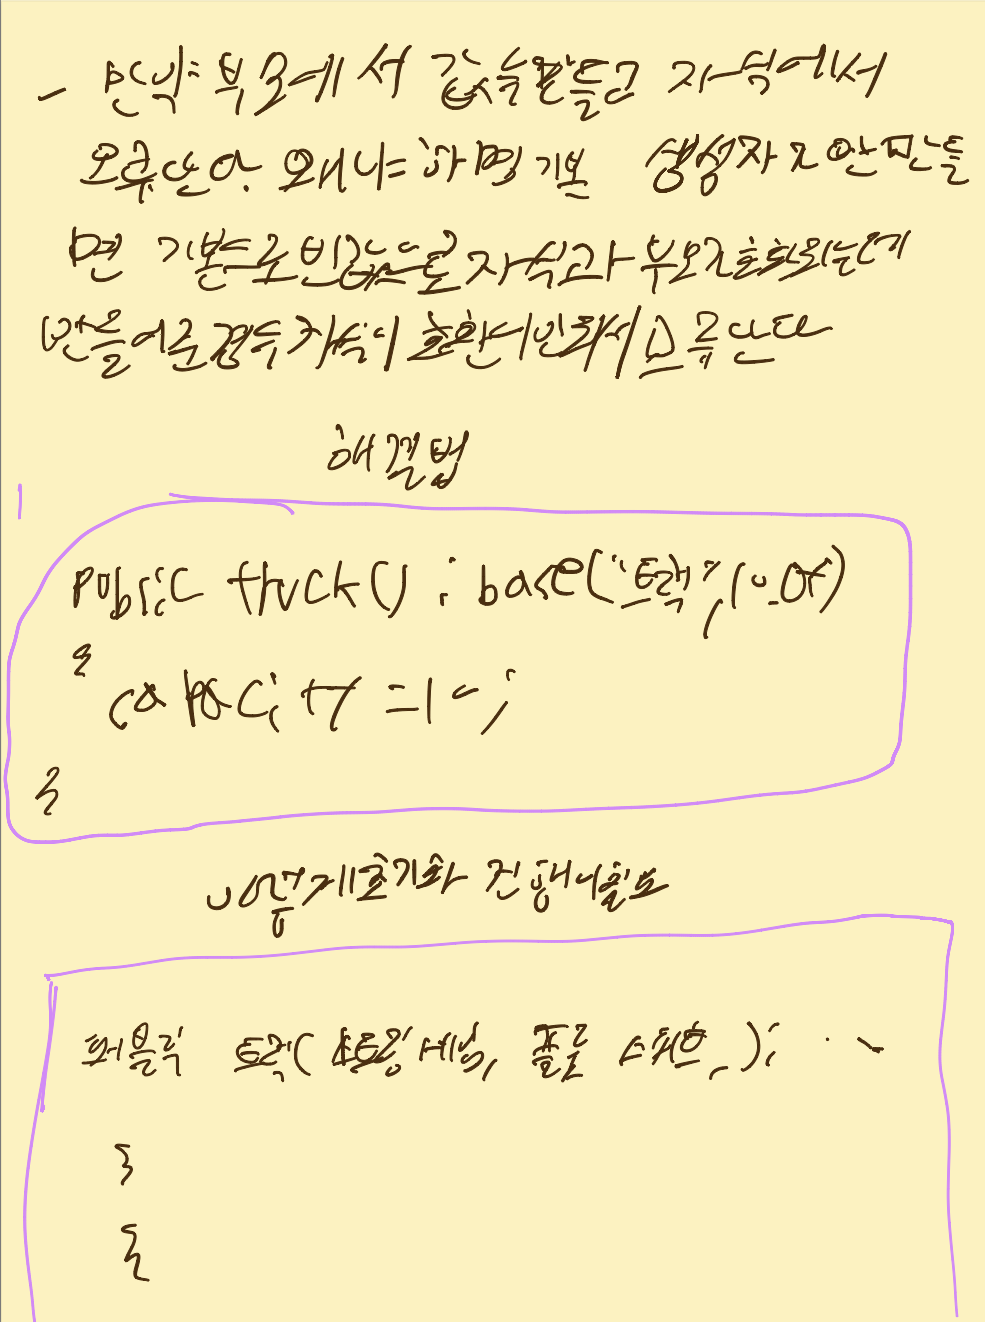 - 만약 부모에서 값을 만들고 자식에서
오류난아 왜냐는하면 기본 생성자가 안만들
면 기본으로 빈값으로 자식과 부모가 초화되는데
만들어준경우 자식이 호환이 안되서 오류난다
해결법
public truck() : base("트럭", 10.0f)
{
capacity = 10;
}
초기화 진행
퍼블릭 트럭( 스트링 네임, 플롯 스피드, ):
}
{